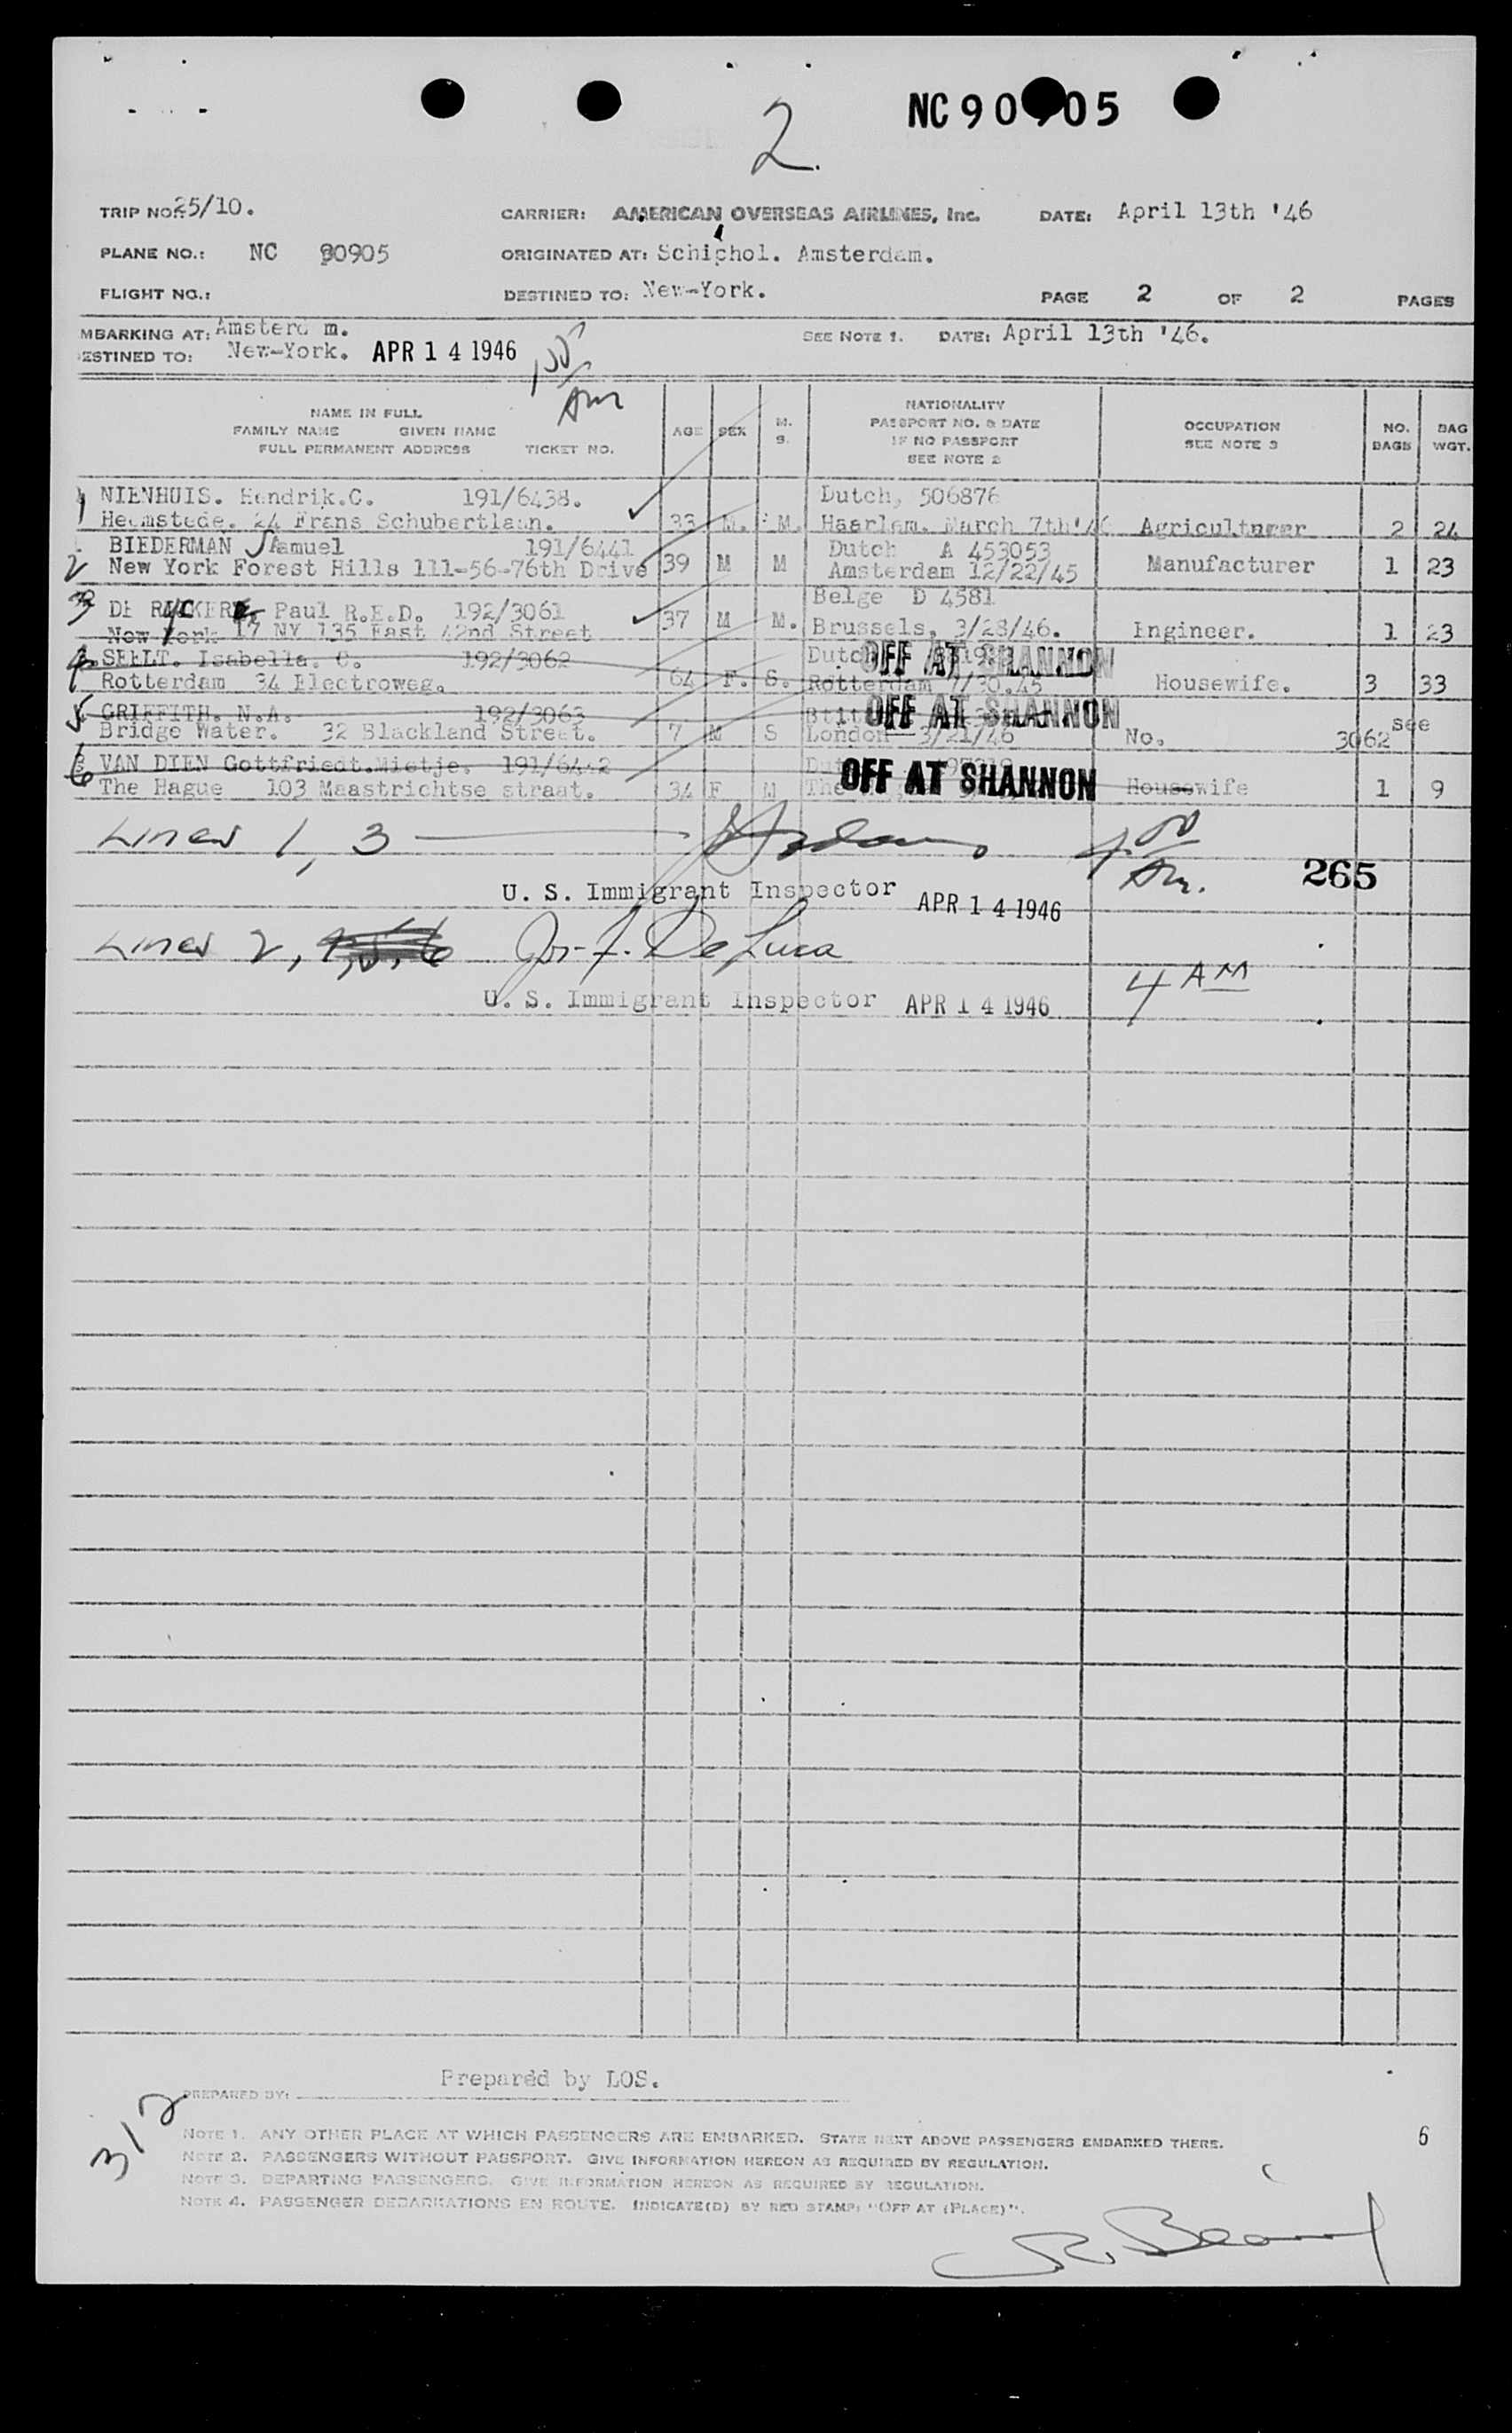 NC 90905
2.
TRIP NO: 25/10. CARRIER: AMERICAN OVERSEAS AIRLINES, Inc. DATE: April 13th '46
PLANE NO.: NC 90905 ORIGINATED AT: Schiphol. Amsterdam.
FLIGHT NO.: DESTINED TO: New-York. PAGE 2 OF 2 PAGES
MBARKING AT: Amsterd m. SEE NOTE 1. DATE: April 13th '46.
ESTINED TO: New-York. APR 14 1946
NAME IN FULL
FAMILY NAME GIVEN NAME
FULL PERMANENT ADDRESS TICKET NO.
AGE SEX M. S.
NATIONALITY
PASSPORT NO. & DATE
IF NO PASSPORT
SEE NOTE 2
OCCUPATION
SEE NOTE 3
NO. BAGS
BAG WGT.
1 NIENHUIS. Hendrik.C. 191/6438. Dutch, 506876
Heemstede. 24 Frans Schubertlaan. 33 M. M. Haarlem. March 7th'46 2 24
BIEDERMAN Samuel 191/6441 Dutch A 453053
2 New York Forest Hills 111-56-76th Drive 39 M M Amsterdam 12/22/45 Manufacturer 1 23
3 DE Paul R.E.D. 192/3061 37 M M. Belge D 4581
New York 17 NY 135 East 42nd Street Brussels, 3/28/46. Engineer. 1 23
4. SEELT. Isabella. C. 192/3062 Dutch OFF AT SHANNON
Rotterdam 34 Electroweg. 64 F. S. Rotterdam 7/30.45 Housewife. 3 33
5. GRIFFITH. N.A. 192/3063 OFF AT SHANNON
Bridge Water. 32 Blackland Street. 7 M S London 3/21/46 No. 3062 see
6 VAN DIEN Gottfriedt.Mietje. 191/6442
The Hague 103 Maastrichtse straat. 34 F M The OFF AT SHANNON Housewife 1 9
Lines 1, 3 4 00 Am. 265
U. S. Immigrant Inspector APR 14 1946
Lines 2, Jos. F. De Luca
U. S. Immigrant Inspector APR 14 1946 4 AM
Prepared by LOS.
PREPARED BY:
312
NOTE 1. ANY OTHER PLACE AT WHICH PASSENGERS ARE EMBARKED. STATE NEXT ABOVE PASSENGERS EMBARKED THERE.
NOTE 2. PASSENGERS WITHOUT PASSPORT. GIVE INFORMATION HEREON AS REQUIRED BY REGULATION.
NOTE 3. DEPARTING PASSENGERS. GIVE INFORMATION HEREON AS REQUIRED BY REGULATION.
NOTE 4. PASSENGER DEBARKATIONS EN ROUTE. INDICATE(D) BY RED STAMP: "OFF AT (PLACE)".
6